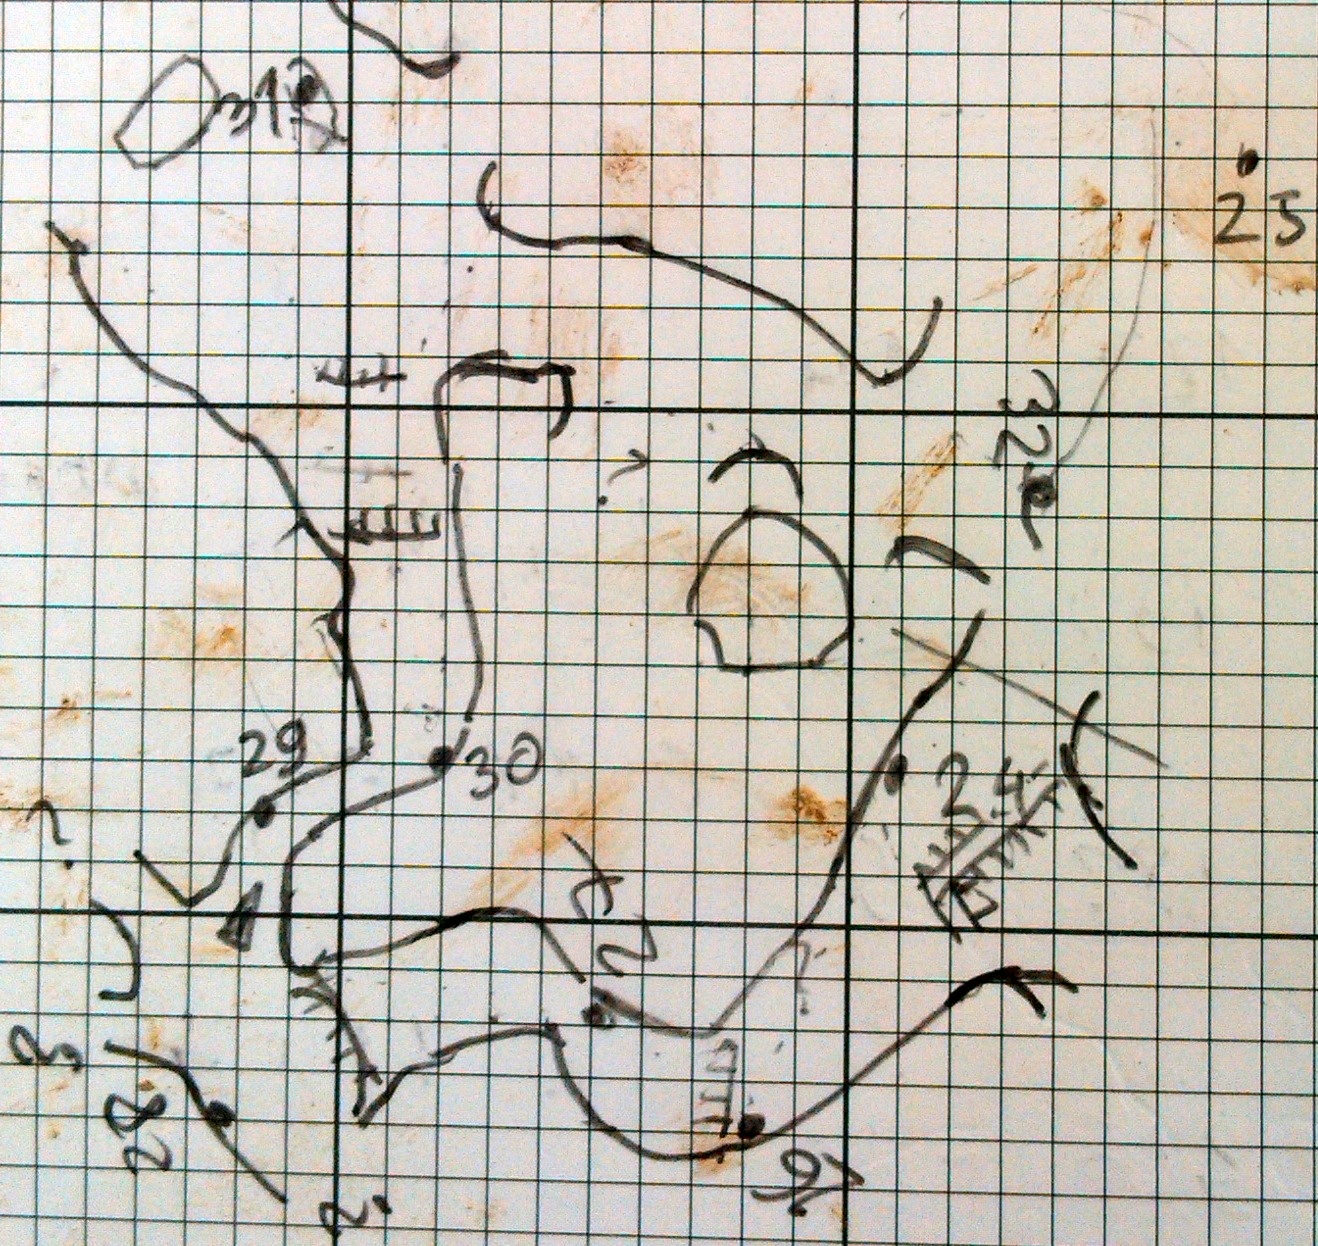 31
25
32
?
29
30
24
?
27
?
28
26
?